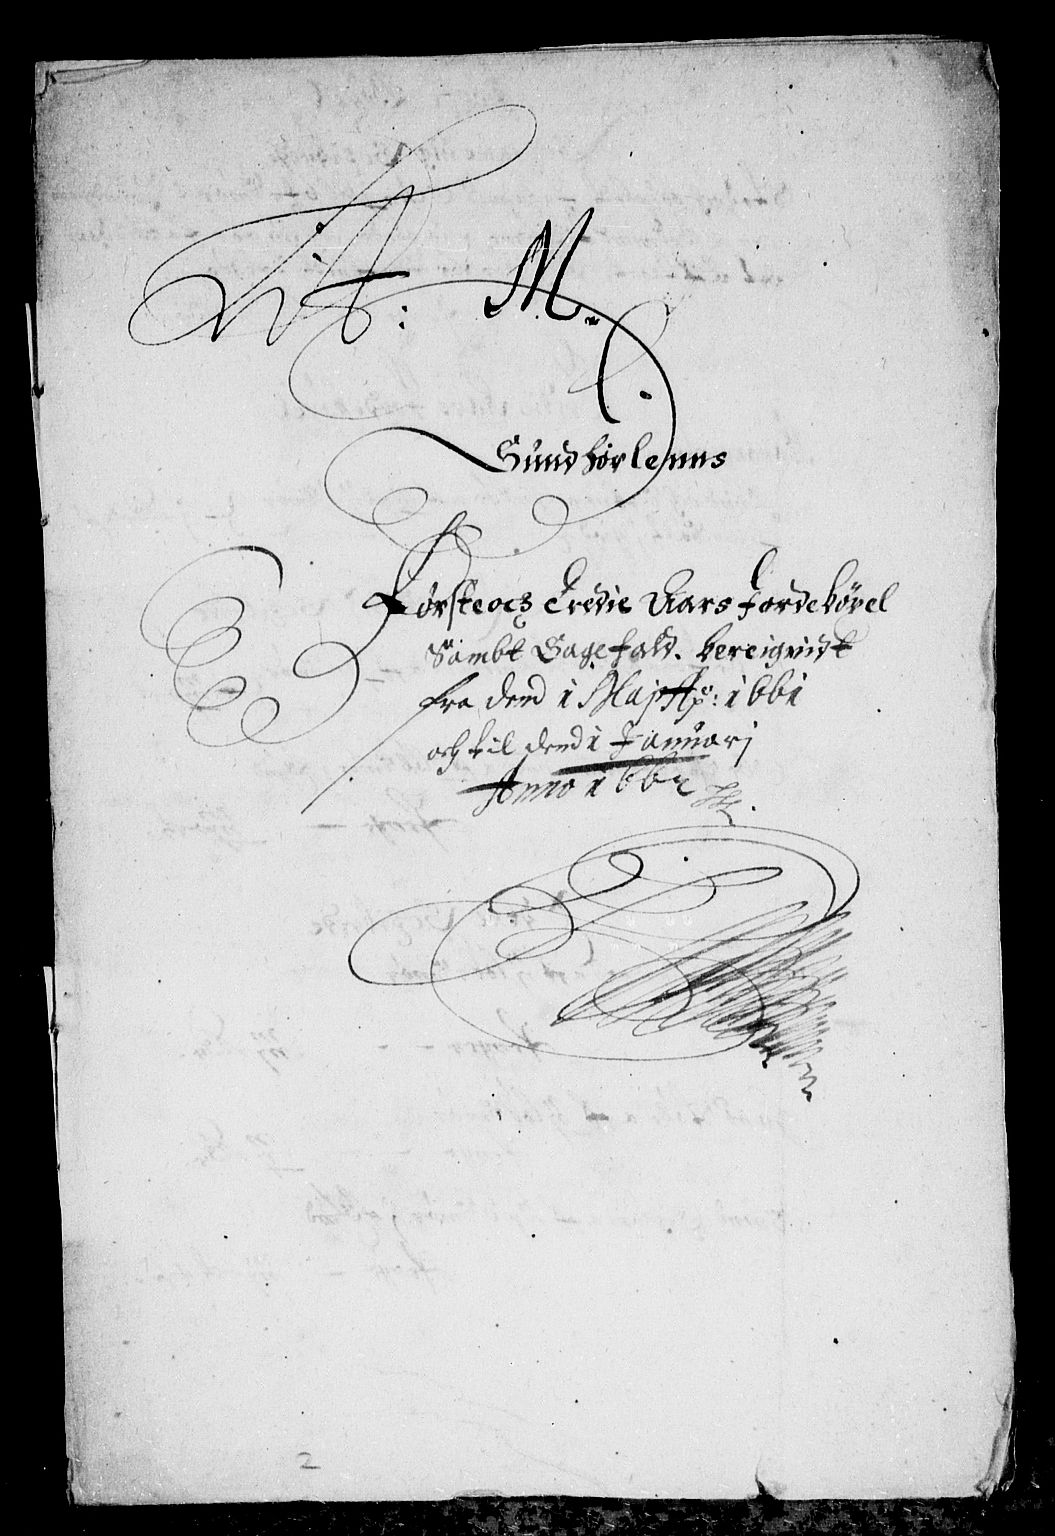 Lit: M.
Sundhorlenns
Første och Tredie Aars Førdebøxel
Sambt Sagefald. bereignidt
fra dend 1 Maij Ao: 1661
och til dend 1 Januarj
Anno 1662
2